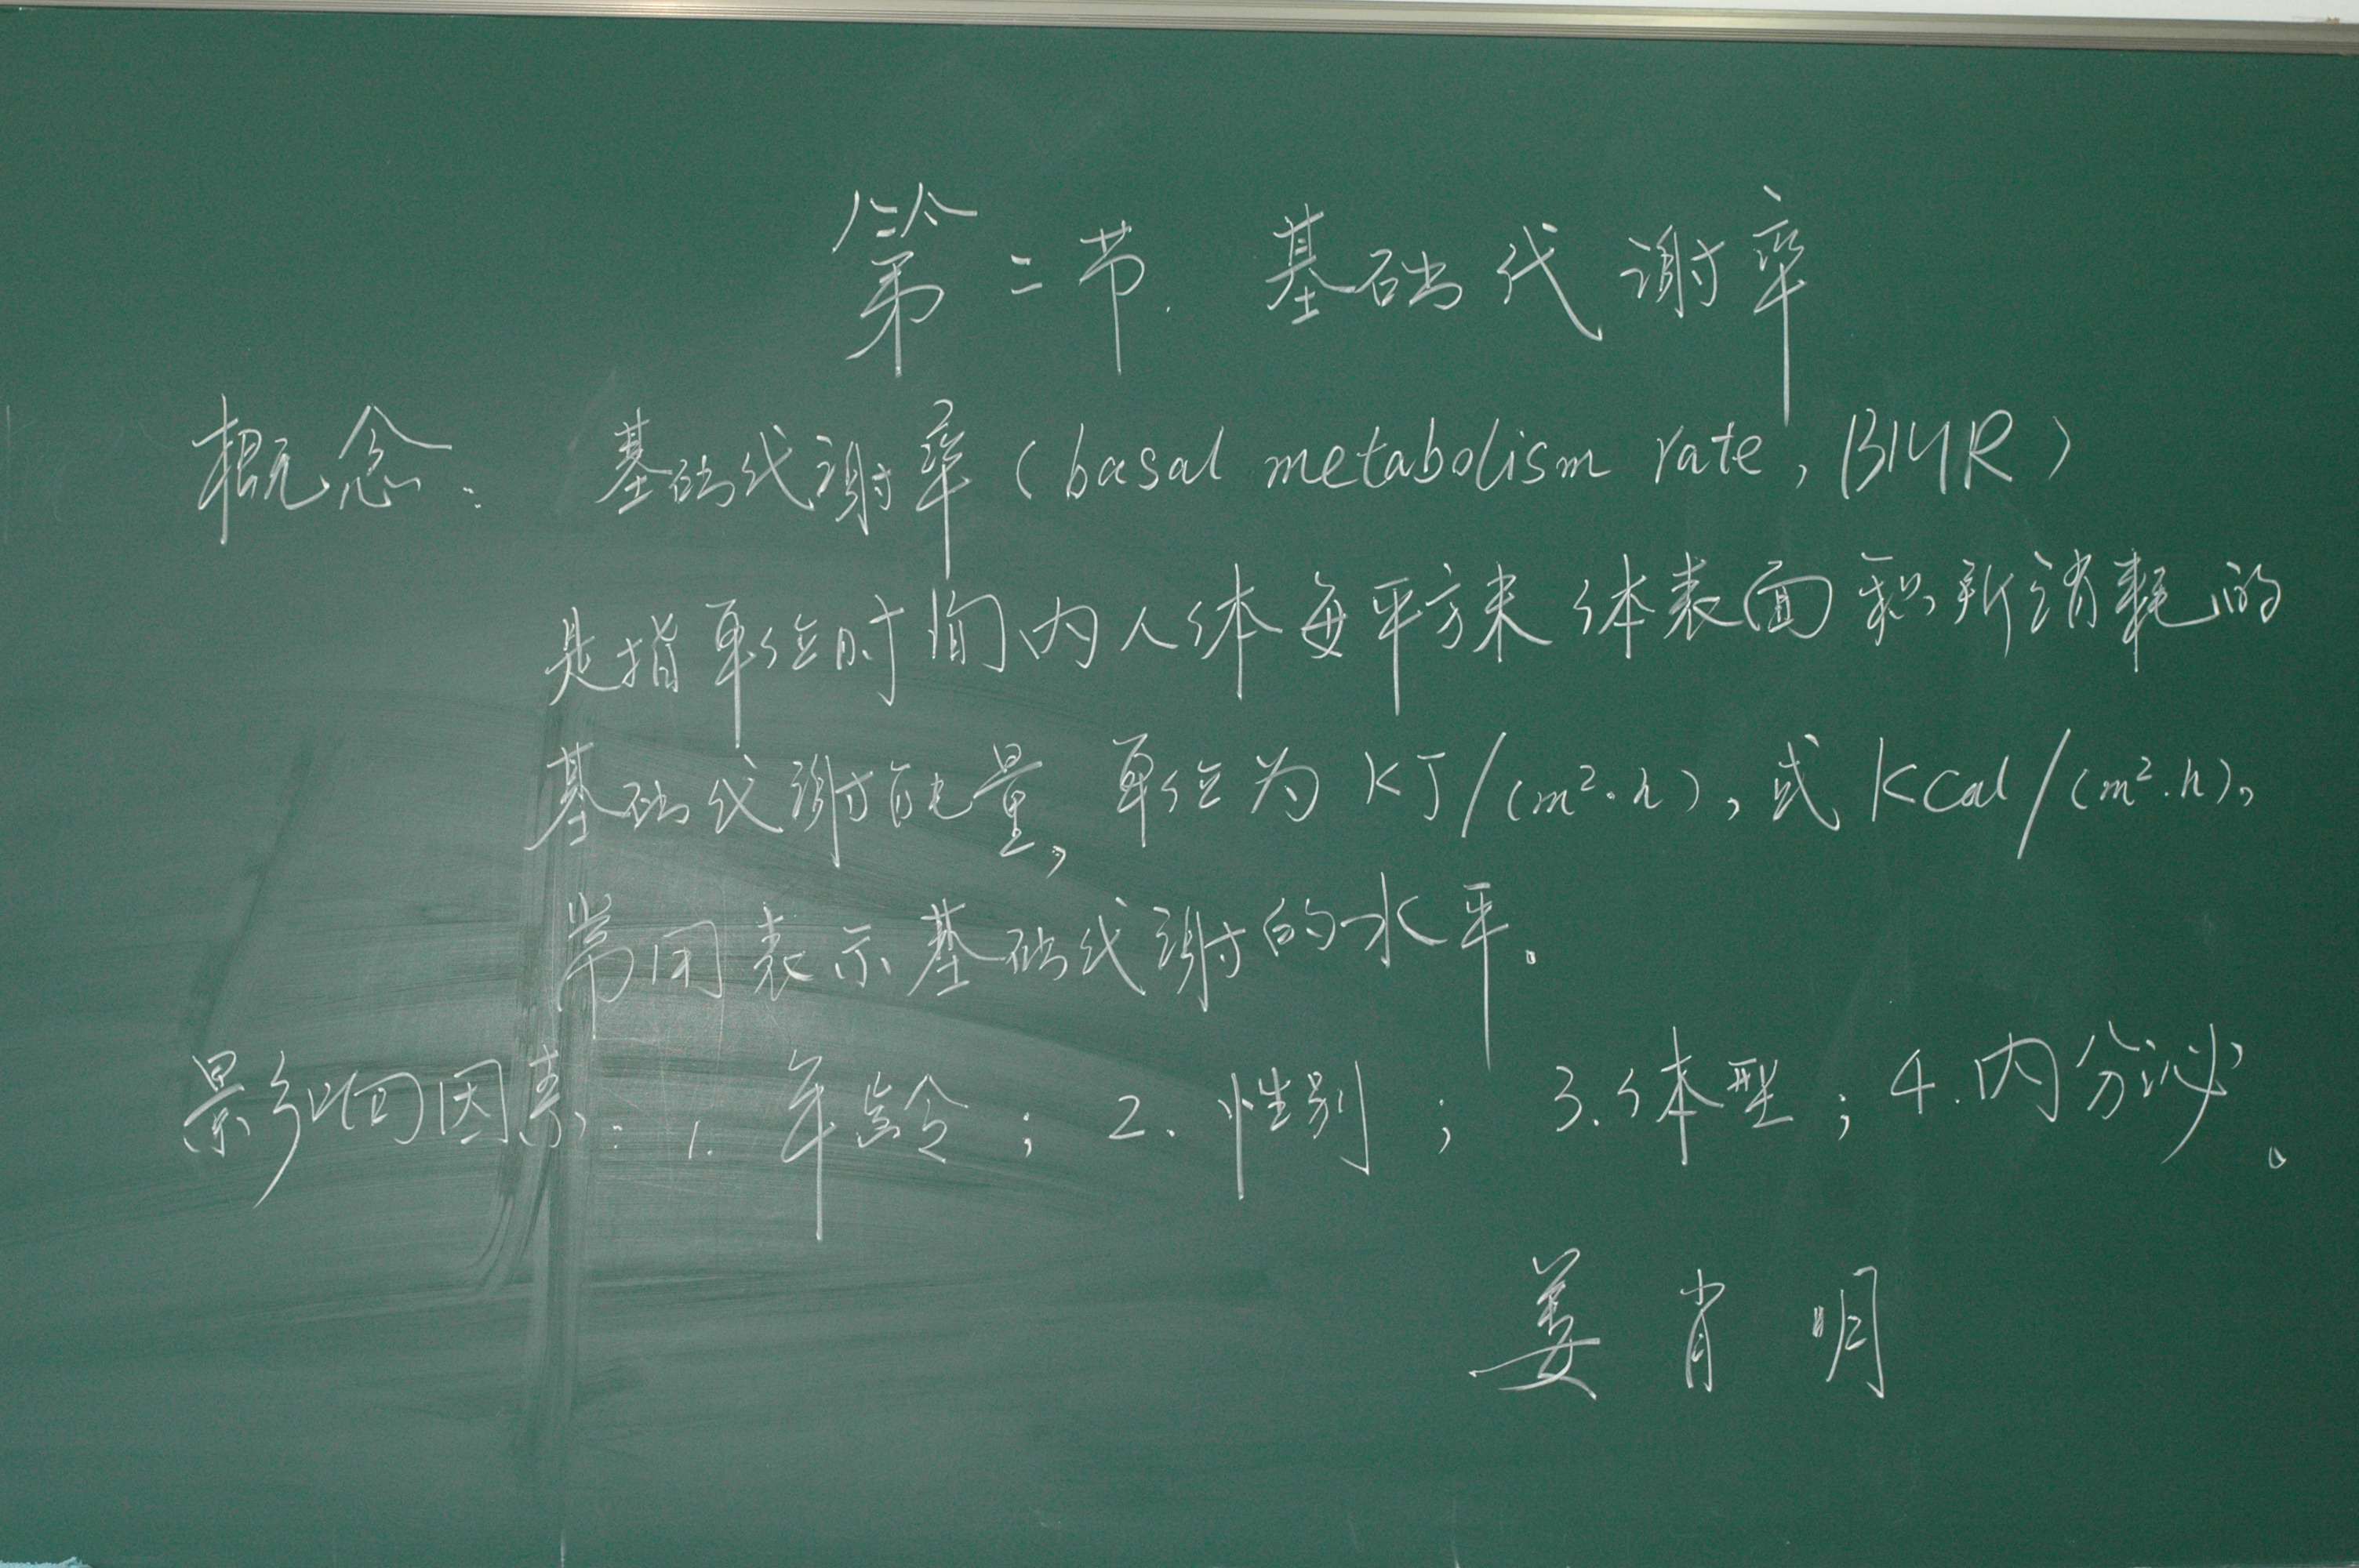 第二节. 基础代谢率
概念: 基础代谢率(basal metabolism rate, BMR)
是指单位时间内人体每平方米体表面积所消耗的
基础代谢能量,单位为KJ/(m²·h),或KCal/(m²·h),
常用表示基础代谢的水平。
影响因素: 1. 年龄; 2. 性别; 3. 体型; 4. 内分泌。
姜肖明